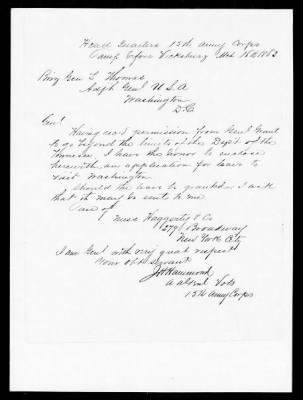 Head Quarters 15th Army Corps
Camp before Vicksburg Mch 16th 1863
Brig Genl L Thomas
Adjt Genl U. S. A
Washington
D.C
Genl
Having recd permission from Genl Grant
to go beyond the limits of the Dept of the
Tennessee I have the honor to enclose
herewith an application for leave to
visit Washington
Should the leave be granted I ask
that it may be sent to me
Care of
Messrs Haggerty & Co
279 Broadway
New York City
I am Genl with very great respect
Your Obt Servant
J H Hammond
A Adjt Genl Vols
15th Army Corps